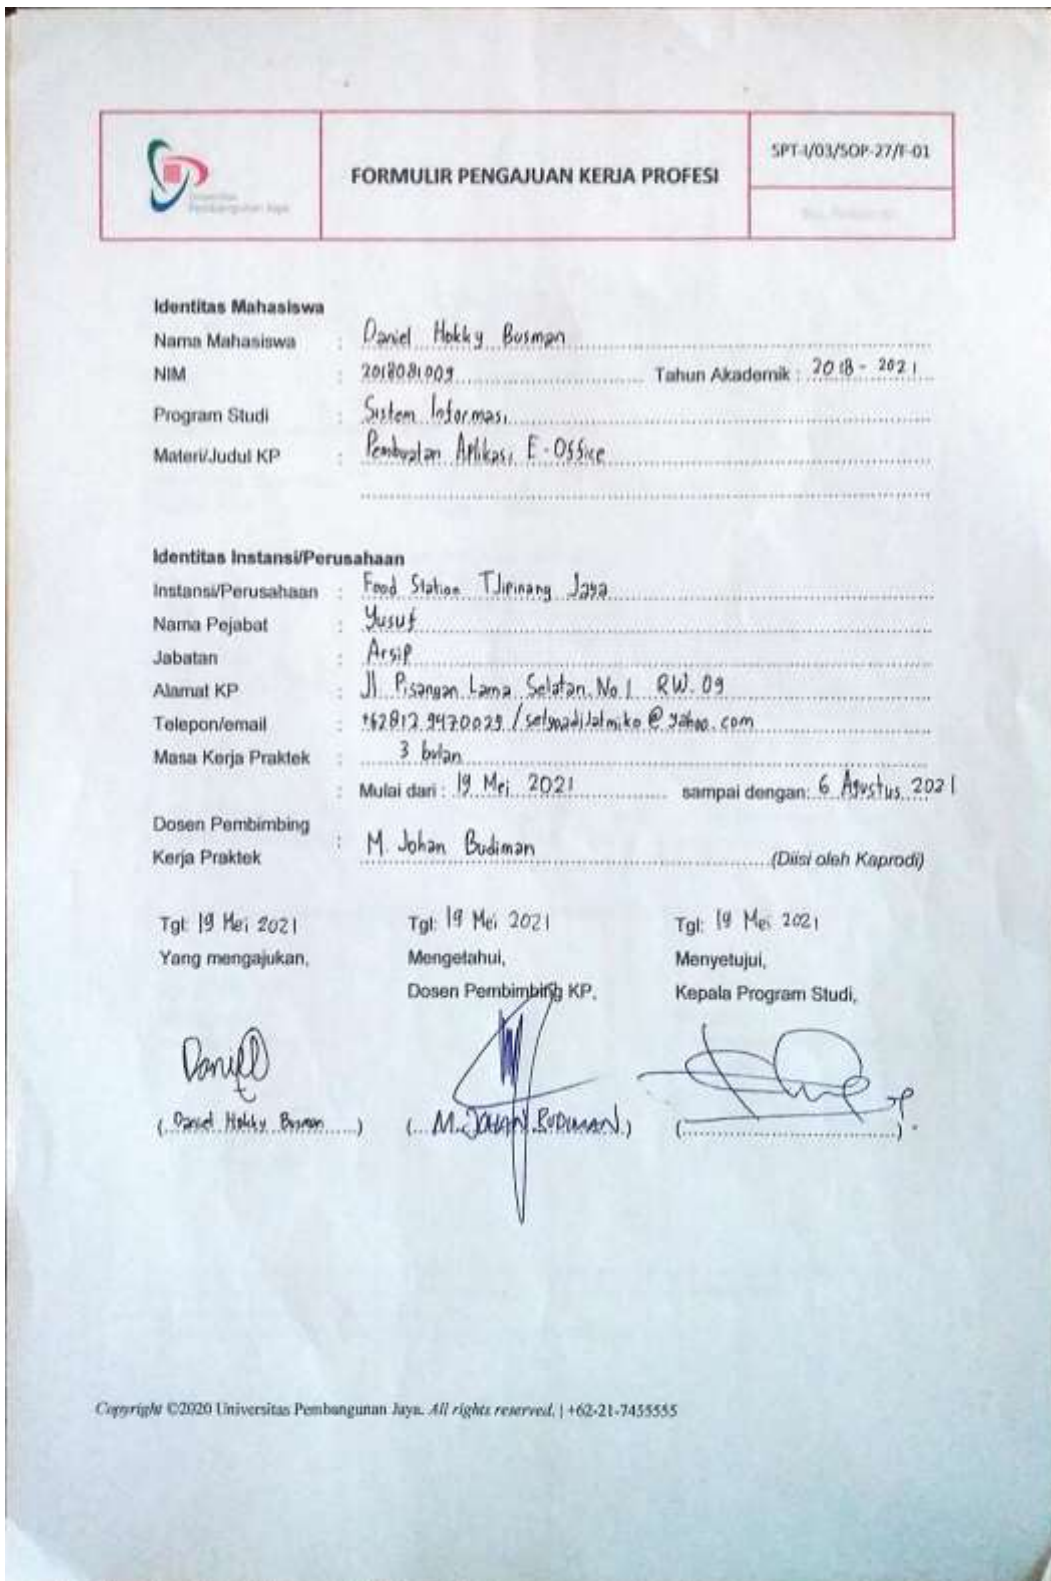 Universitas
Pembangunan Jaya
FORMULIR PENGAJUAN KERJA PROFESI
SPT-I/03/SOP-27/F-01
Identitas Mahasiswa
Nama Mahasiswa : Daniel Hokky Busman
NIM : 2018081009 Tahun Akademik : 2018 - 2021
Program Studi : Sistem Informasi
Materi/Judul KP : Pembuatan Aplikasi E-Office
Identitas Instansi/Perusahaan
Instansi/Perusahaan : Food Station TJipinang Jaya
Nama Pejabat : Yusuf
Jabatan : Arsip
Alamat KP : Jl Pisangan Lama Selatan No 1 RW. 09
Telepon/email : +62812 9470029 / @yahoo.com
Masa Kerja Praktek : 3 bulan
: Mulai dari : 19 Mei 2021 sampai dengan: 6 Agustus 2021
Dosen Pembimbing
Kerja Praktek : M. Johan Budiman (Diisi oleh Kaprodi)
Tgl: 19 Mei 2021 Tgl: 19 Mei 2021 Tgl: 19 Mei 2021
Yang mengajukan, Mengetahui, Menyetujui,
Dosen Pembimbing KP, Kepala Program Studi,
Daniel
( Daniel Hokky Busman ) ( M. JOHAN BUDIMAN ) ( )
Copyright ©2020 Universitas Pembangunan Jaya. All rights reserved. | +62-21-7455555